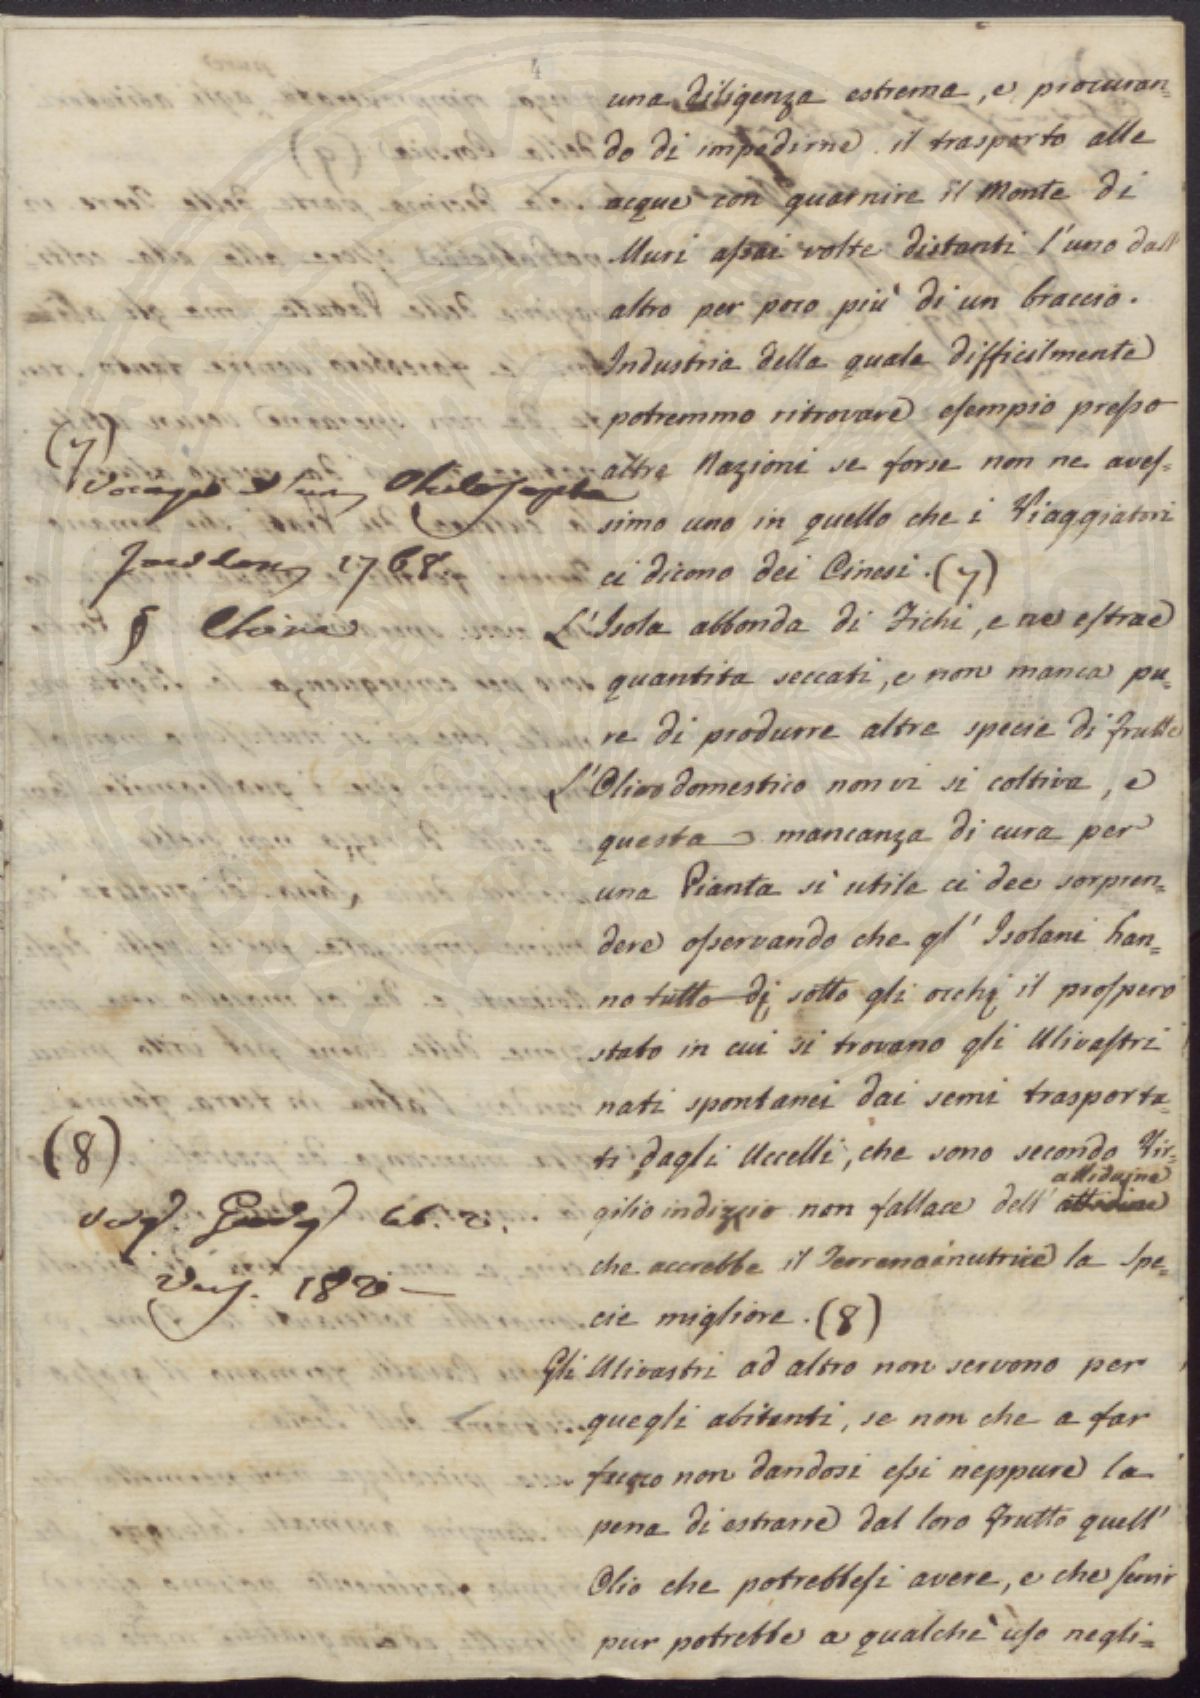 4
una diligenza estrema, e procuran=
do di impedirne il trasporto alle
acque con guarnire il Monte di
Muri assai volte distanti l'uno dall'
altro per poco più di un braccio.
Industria della quale difficilmente
potremmo ritrovare esempio presso
altre Nazioni se forse non ne aves=
simo uno in quello che i Viaggiatori
ci dicono dei Cinesi. (7)
L'Isola abbonda di Fichi, e ne estrae
quantita seccati, e non manca pu=
re di produrre altre specie di frutte
L'Olivo domestico non vi si coltiva, e
questa mancanza di cura per
una Pianta sì utile ci dee sorpren=
dere osservando che gl' Isolani han=
no tutto dì sotto gli occhi il prospero
stato in cui si trovano gli Ulivastri
nati spontanei dai semi trasporta=
ti dagli Uccelli, che sono secondo Vir=
gilio indizio non fallace dell' attitudine
che accrebbe il Terreno a nutrire la spe=
cie migliore. (8)
Gli Ulivastri ad altro non servono per
quegli abitanti, se non che a far
fuoco non dandosi essi neppure la
pena di estrarre dal loro frutto quell'
Olio che potrebbesi avere, e che servir
pur potrebbe a qualche uso negli=
(7)
Voyage d'un Philosophe
1768
§ Chine
(8)
Virg. Georg. lib. 2.
Vers. 182